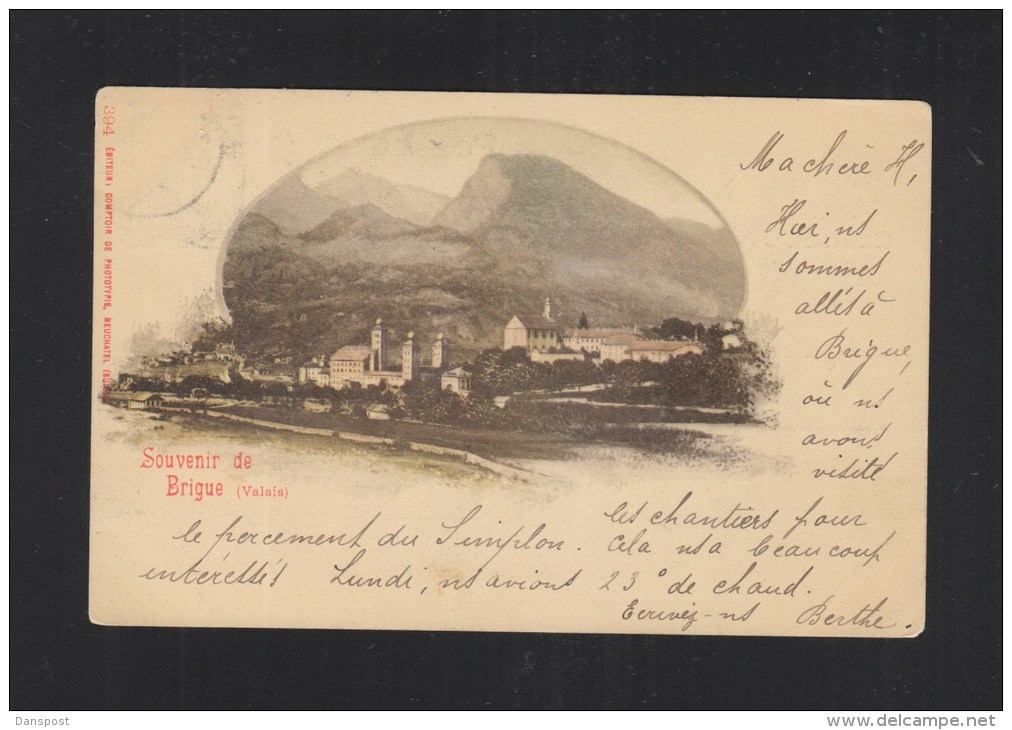 394 ÉDITEUR: COMPTOIR DE PHOTOTYPIE, NEUCHATEL
Ma chère H,
Hier, ns
sommes
allés à
Brigue,
où ns
avons
visité
les chantiers pour
le percement du Simplon. Cela ns a beaucoup
intéressés Lundi, ns avions 23° de chaud.
Ecrivez-ns Berthe.
Souvenir de
Brigue (Valais)
Danspost
www.delcampe.net